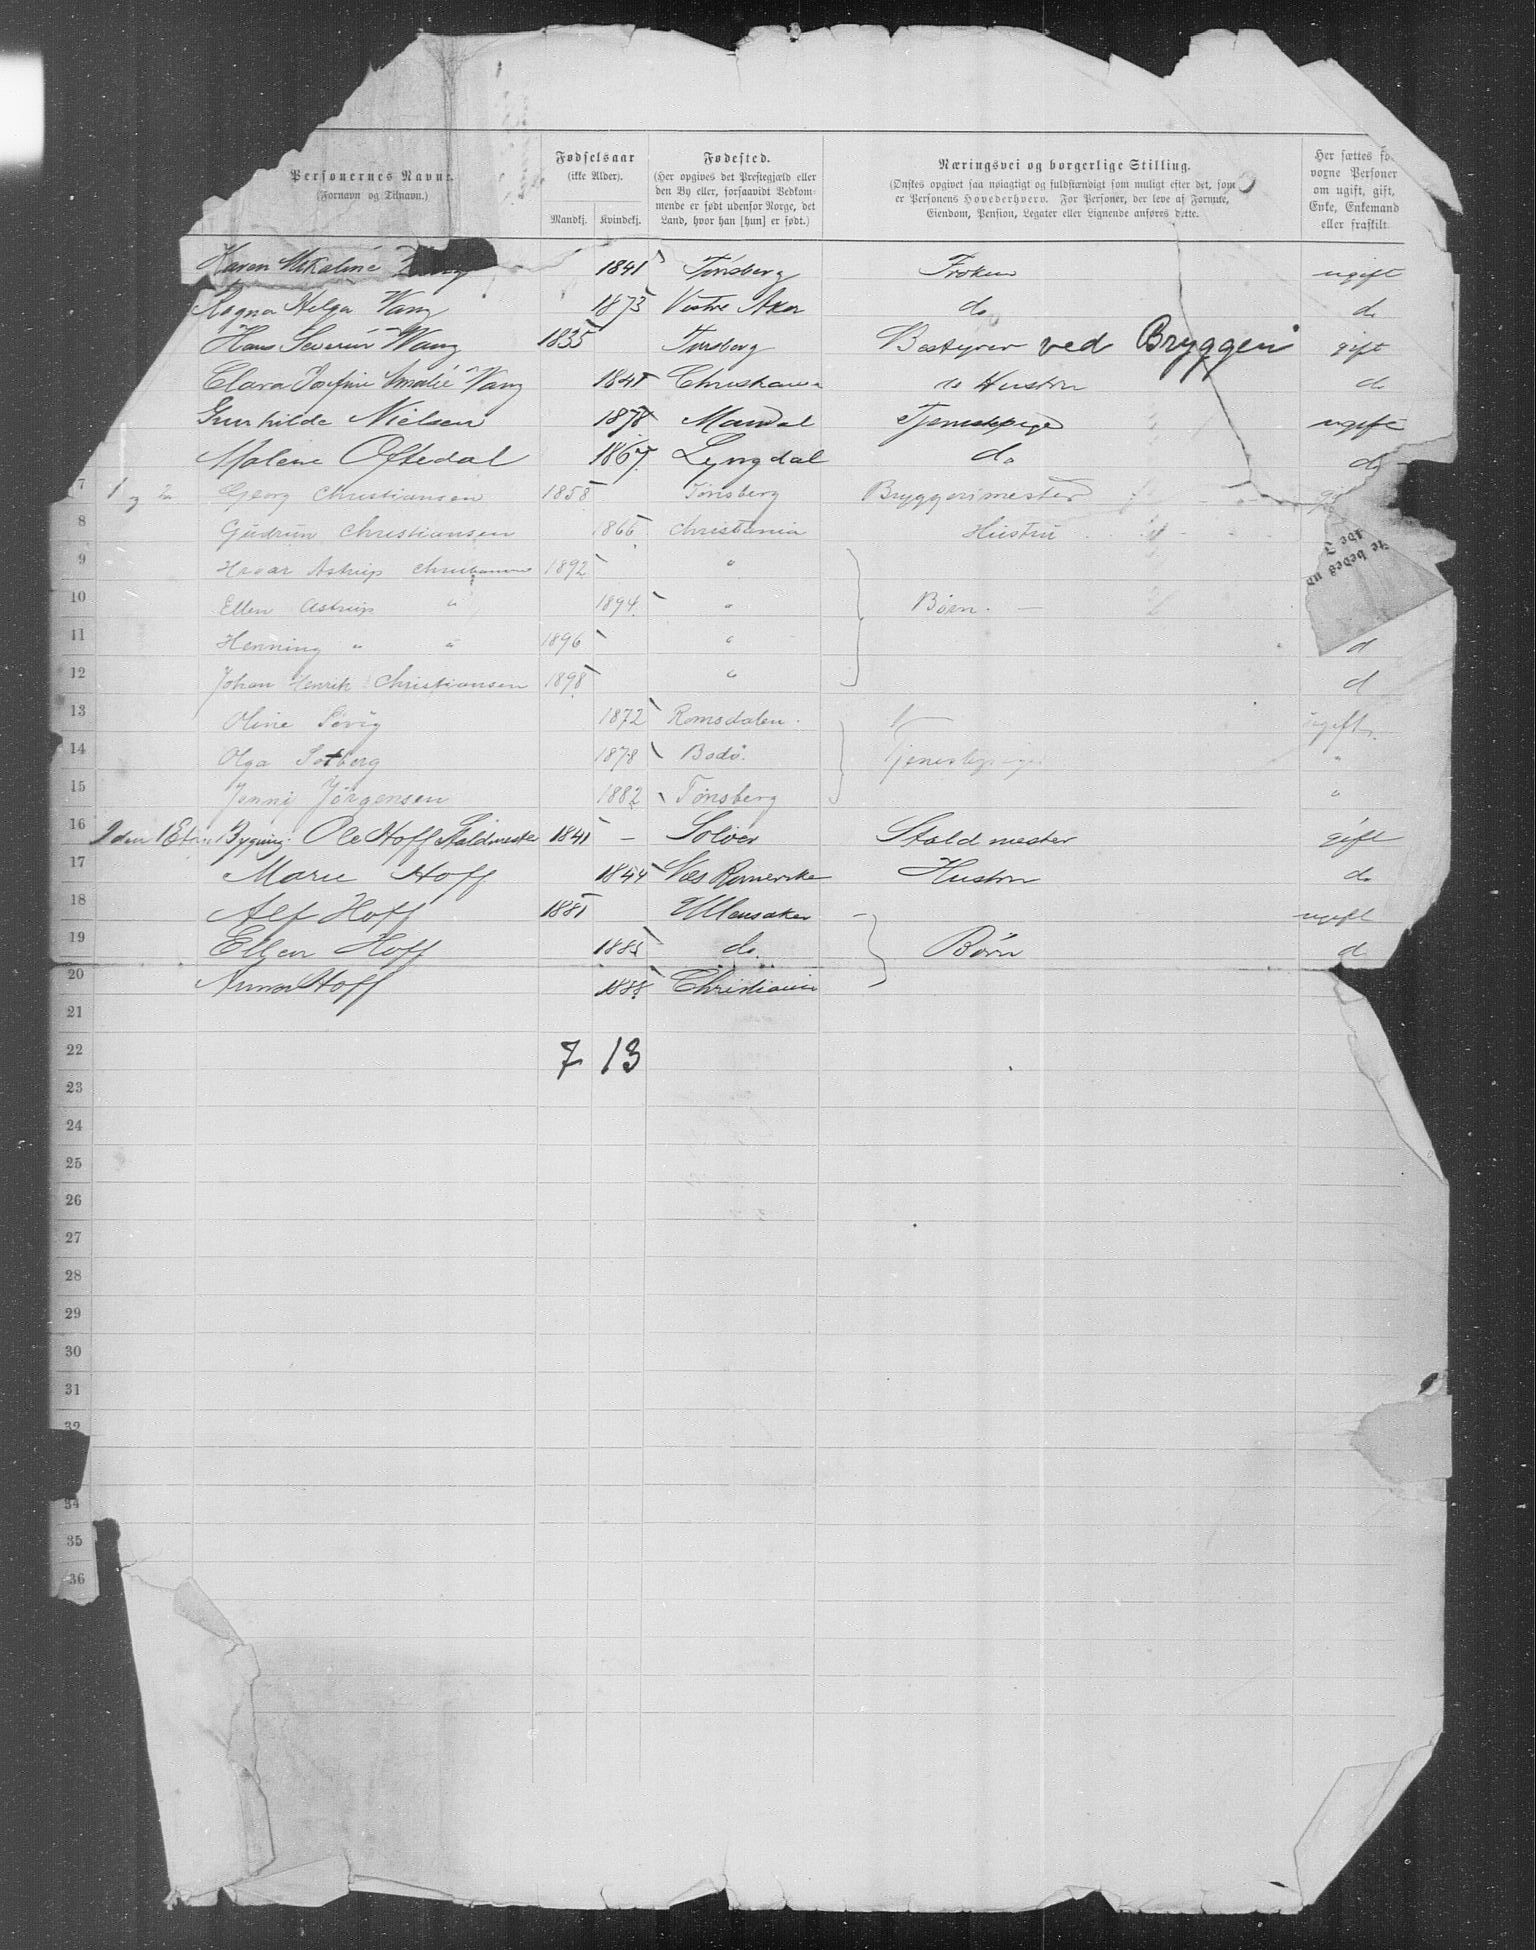 Personernes Navne.
(Fornavn og Tilnavn.)
Fødselsaar
(ikke Alder).
Mandkj. Kvindekj.
Fødested.
(Her opgives det Prestegjæld eller
den By eller, forsaavidt Vedkom-
mende er født udenfor Norge, det
Land, hvor han [hun] er født.)
Næringsvei og borgerlige Stilling.
(Ønskes opgivet saa nøiagtigt og fuldstændigt som muligt efter det, som
er Personens Hovederhverv. For Personer, der leve af Formue,
Eiendom, Pension, Legater eller Lignende anføres dette.
Her sættes fo
voxne Personer
om ugift, gift,
Enke, Enkemand
eller fraskilt
Karen Mikaline 1841 Tønsberg Frøken ugift
Ragna Helga Wang 1873 Vestre Aker do do
Hans Severin Wang 1835 Tønsberg Bestyrer ved Bryggeri gift
Clara Josefine Amalie Wang 1841 Christiania Hustru do
Gunhilde Nielsen 1878 Mandal Tjenestepige ugift
Malene Oftedal 1867 Lyngdal do do
7 1 og Georg Christiansen 1858 Tønsberg Bryggerimester
8 Gudrun Christiansen 1866 Christiania Hustru
9 Hroar Astrup Christiansen 1892 "
10 Ellen Astrup " 1894 " Børn. —
11 Henning " " 1896 " d
12 Johan Henrik Christiansen 1898 " d
13 Oline Søvig 1872 Romsdalen. ugift.
14 Olga Solberg 1878 Bodø. "
15 Jenni Jørgensen 1882 Tønsberg "
16 Bygning: Ole Hoff Staldmester 1841 — Soløer Stald mester gift
17 Marie Hoff 1844 Næs Romerike Hustru do
18 Alf Hoff 1881 Ullensaker ugift
19 Ellen Hoff 1885 do. Børn d
20 Anna Hoff 1888 Christiania
21
22 7 13
23
24
25
26
27
28
29
30
31
32
34
35
36